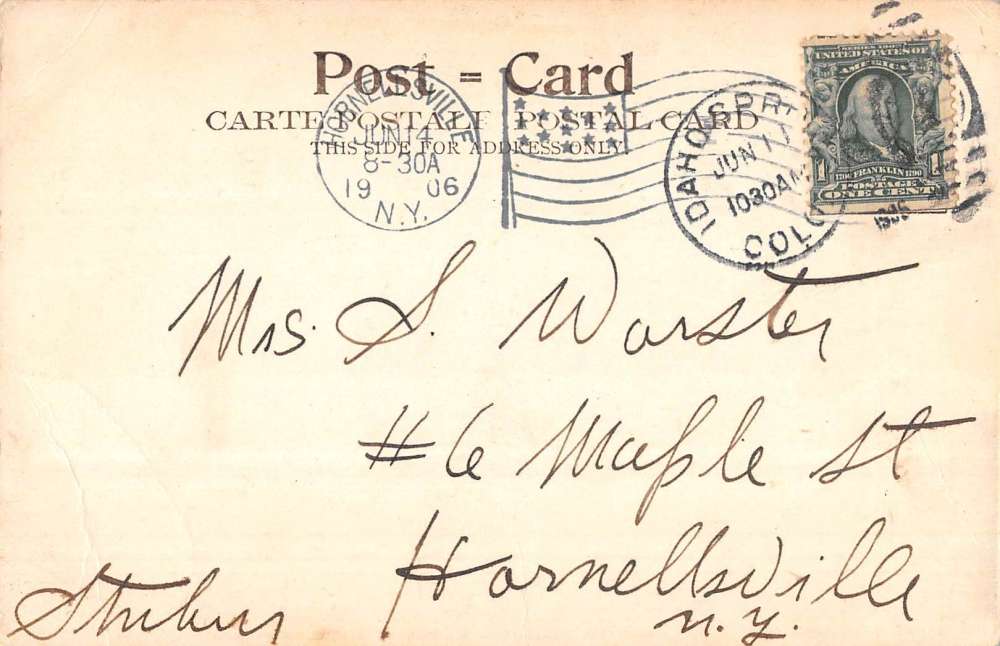 Post = Card
CARTE POSTALE POSTAL CARD
THIS SIDE FOR ADDRESS ONLY
HORNELLSVILLE
JUN 14
8-30A
1906
N.Y.
IDAHO SPRI
JUN 1
1030AM
COLO
1906
SERIES 1902
UNITED STATES OF
AMERICA
1706 FRANKLIN 1790
1 POSTAGE 1
ONE CENT
Mrs. S. Worster
#6 Maple St
Hornellsville
N.Y.